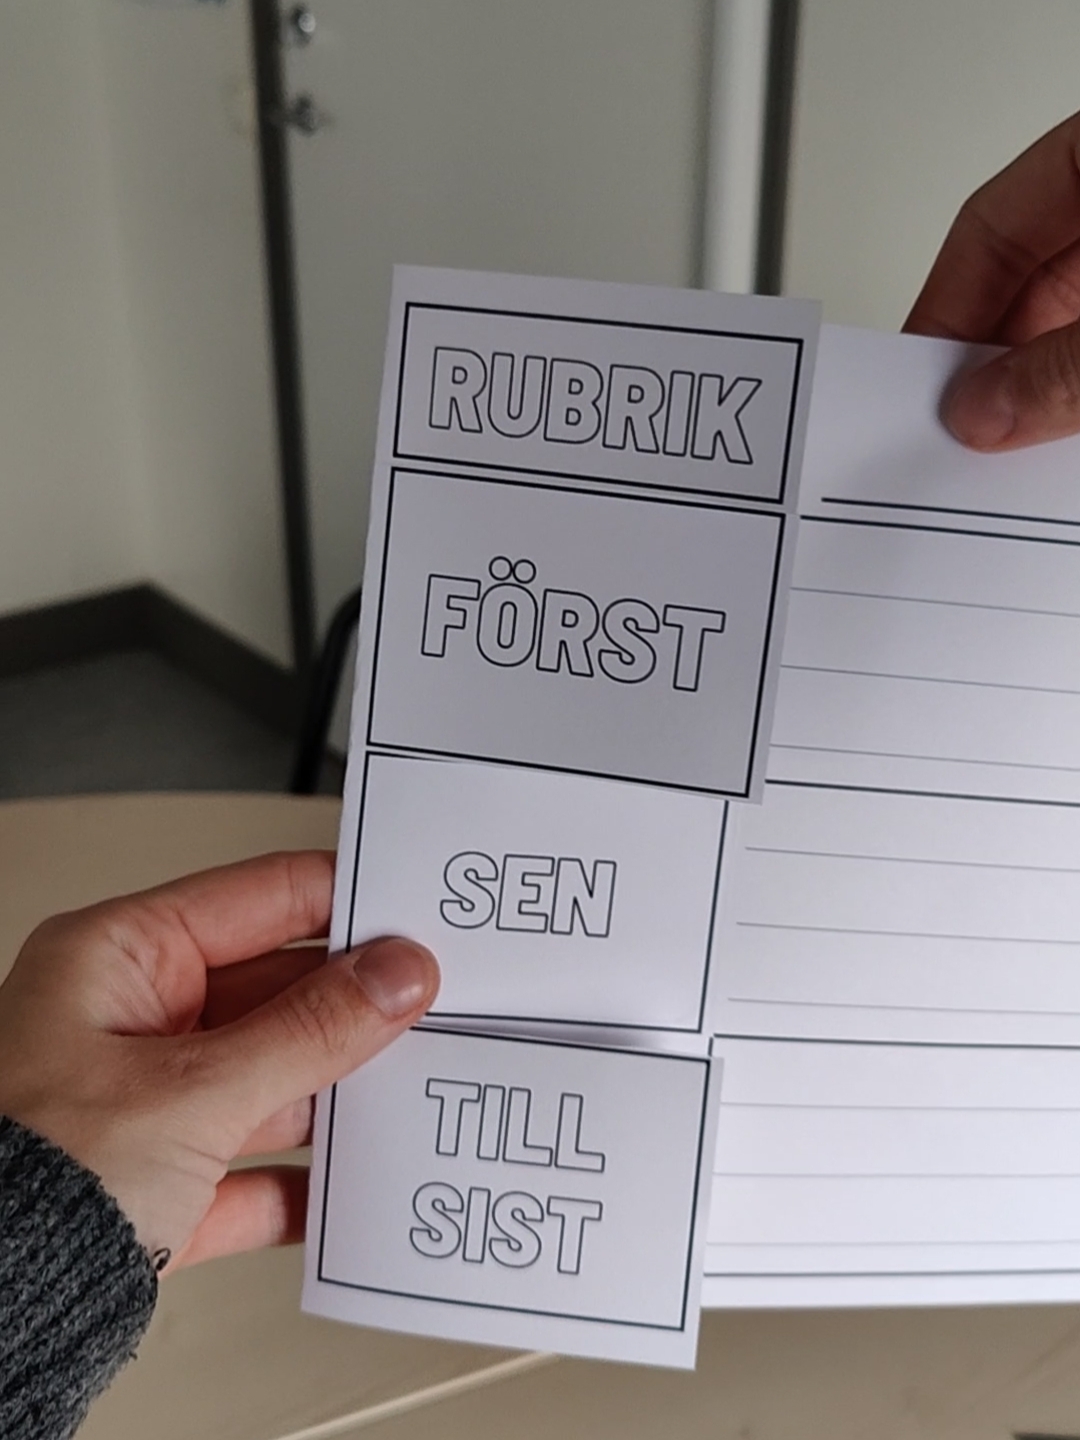 RUBRIK
FÖRST
SEN
TILL
SIST